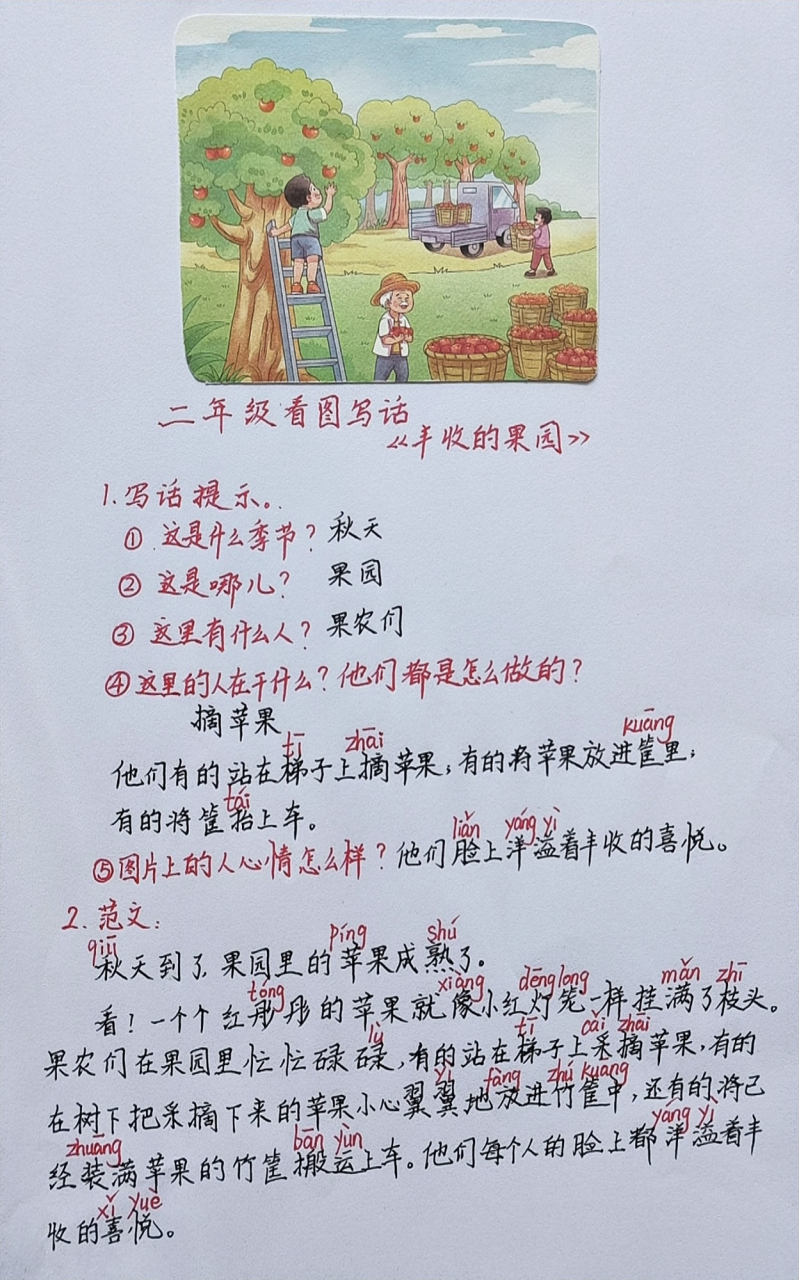 二年级看图写话
《丰收的果园》
1.写话提示。
① 这是什么季节？秋天
② 这是哪儿？ 果园
③ 这里有什么人？果农们
④这里的人在干什么？他们都是怎么做的？
摘苹果
tī zhāi kuāng
他们有的站在梯子上摘苹果；有的将苹果放进筐里；
tái
有的将筐抬上车。
liǎn yáng yì
⑤图片上的人心情怎么样？他们脸上洋溢着丰收的喜悦。
2.范文：
qiū píng shú
秋天到了，果园里的苹果成熟了。
tóng xiàng dēng long mǎn zhī
看！一个个红彤彤的苹果就像小红灯笼一样挂满了枝头。
lù tī cǎi zhāi
果农们在果园里忙忙碌碌，有的站在梯子上采摘苹果，有的
yì fàng zhú kuang
在树下把采摘下来的苹果小心翼翼地放进竹筐中，还有的将已
zhuāng bān yùn yáng yì
经装满苹果的竹筐搬运上车。他们每个人的脸上都洋溢着丰
xǐ yuè
收的喜悦。